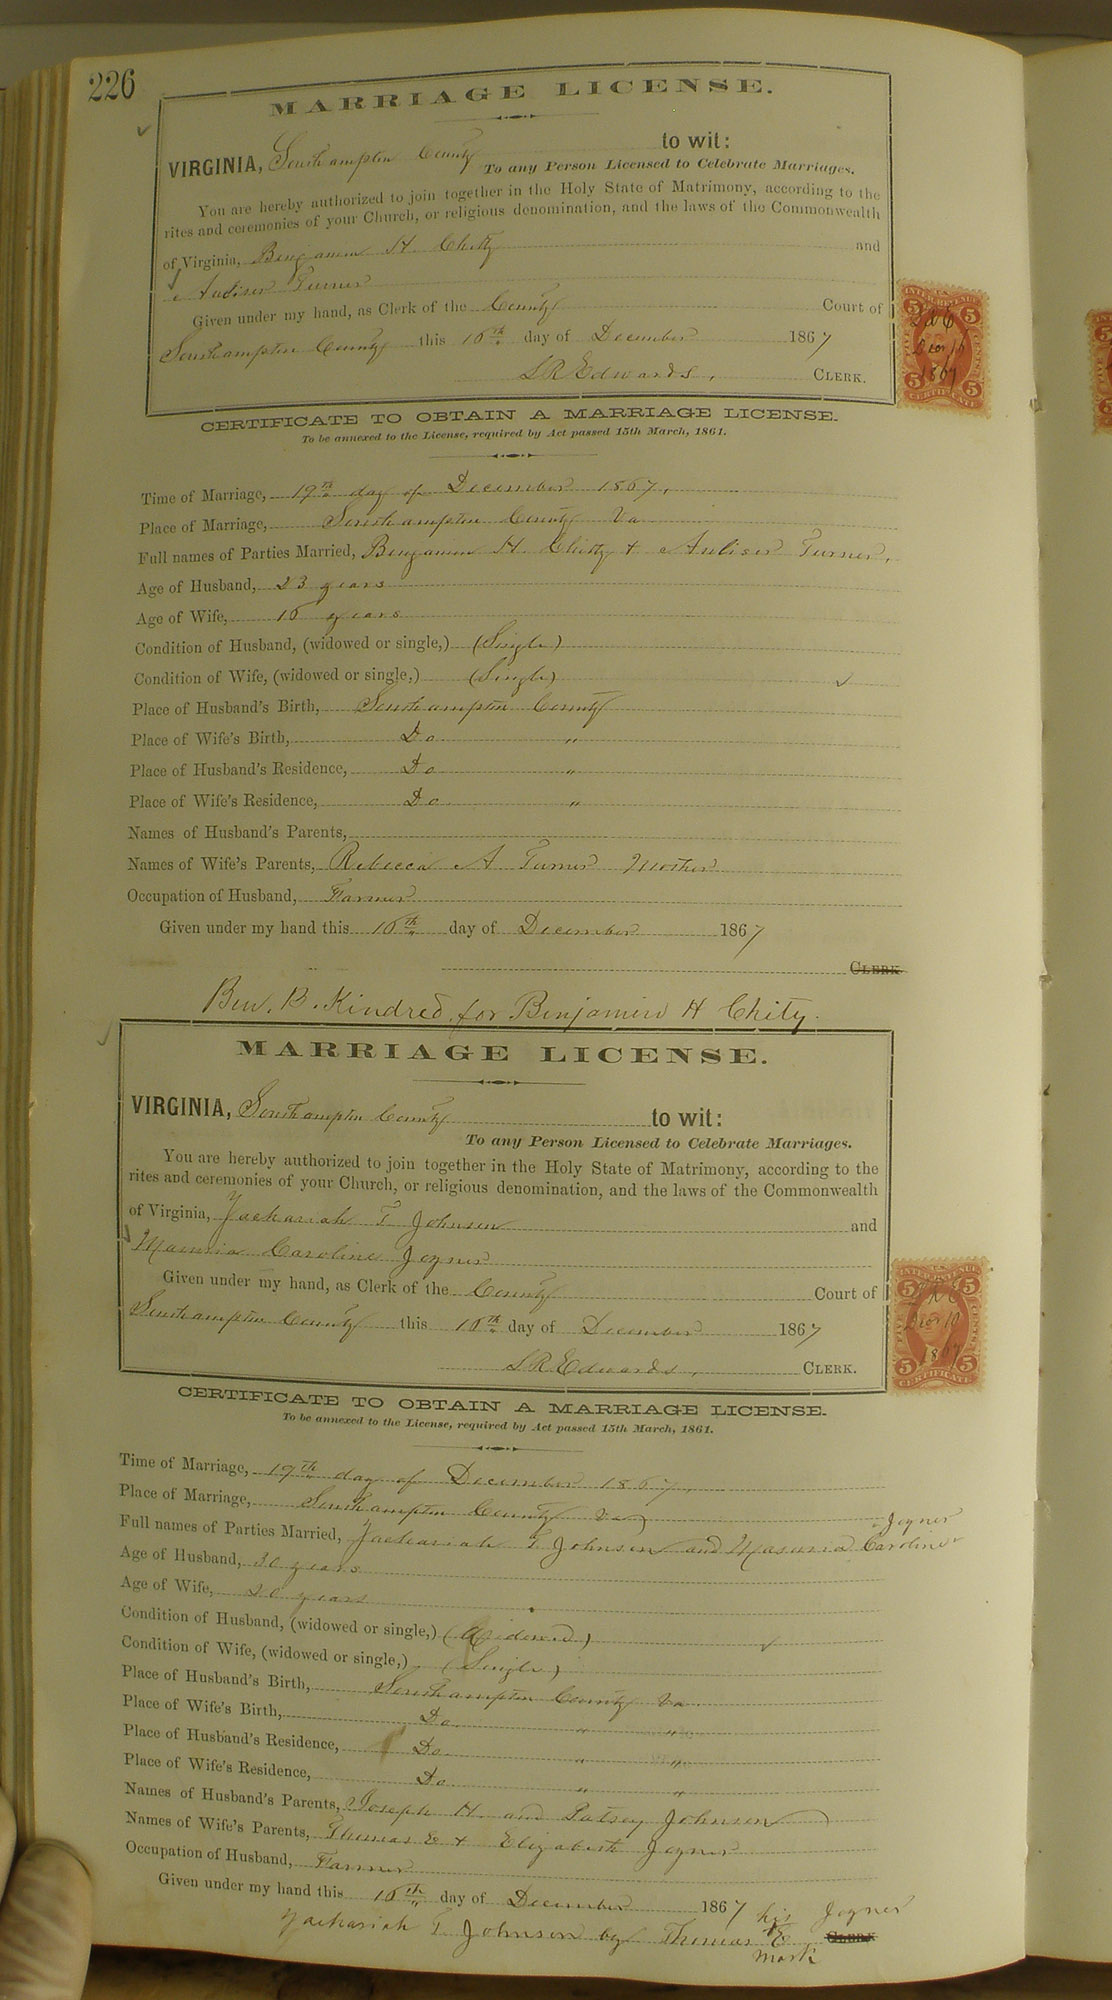 226
MARRIAGE LICENSE.
VIRGINIA, Southampton County to wit:
To any Person Licensed to Celebrate Marriages.
You are hereby authorized to join together in the Holy State of Matrimony, according to the
rites and ceremonies of your Church, or religious denomination, and the laws of the Commonwealth
of Virginia, Benjamin H Chitty and
Turner
Given under my hand, as Clerk of the County Court of
Southampton County this 16th day of December 1867
L R Edwards, CLERK.
CERTIFICATE TO OBTAIN A MARRIAGE LICENSE.
To be annexed to the License, required by Act passed 15th March, 1861.
Time of Marriage, 19th day of December 1867,
Place of Marriage, Southampton County Va
Full names of Parties Married, Benjamin H. Chitty + Turner,
Age of Husband, 23 years
Age of Wife, 16 years
Condition of Husband, (widowed or single,) (Single)
Condition of Wife, (widowed or single,) (Single)
Place of Husband's Birth, Southampton County
Place of Wife's Birth, Do "
Place of Husband's Residence, Do "
Place of Wife's Residence, Do "
Names of Husband's Parents,
Names of Wife's Parents, Rebecca A Turner Mother
Occupation of Husband, Farmer
Given under my hand this 16th day of December 1867
CLERK
Ben. B. Kindred for Benjamin H Chity.
MARRIAGE LICENSE.
VIRGINIA, Southampton County to wit:
To any Person Licensed to Celebrate Marriages.
You are hereby authorized to join together in the Holy State of Matrimony, according to the
rites and ceremonies of your Church, or religious denomination, and the laws of the Commonwealth
of Virginia, Zachariah T Johnson and
Caroline Joyner
Given under my hand, as Clerk of the County Court of
Southampton County this 16th day of December 1867
L R Edwards, CLERK.
CERTIFICATE TO OBTAIN A MARRIAGE LICENSE.
To be annexed to the License, required by Act passed 15th March, 1861.
Time of Marriage, 19th day of December 1867,
Place of Marriage, Southampton County Va
Joyner
Full names of Parties Married, Zachariah T Johnson and Caroline
Age of Husband, 30 years
Age of Wife, 20 years
Condition of Husband, (widowed or single,) (Widowed)
Condition of Wife, (widowed or single,) (Single)
Place of Husband's Birth, Southampton County Va
Place of Wife's Birth, Do " "
Place of Husband's Residence, Do " "
Place of Wife's Residence, Do " "
Names of Husband's Parents, Joseph H. and Patsey Johnson
Names of Wife's Parents, Thomas E + Elizabeth Joyner
Occupation of Husband, Farmer
Given under my hand this 16th day of December 1867
his
Zachariah T. Johnson by Thomas E Joyner CLERK
mark